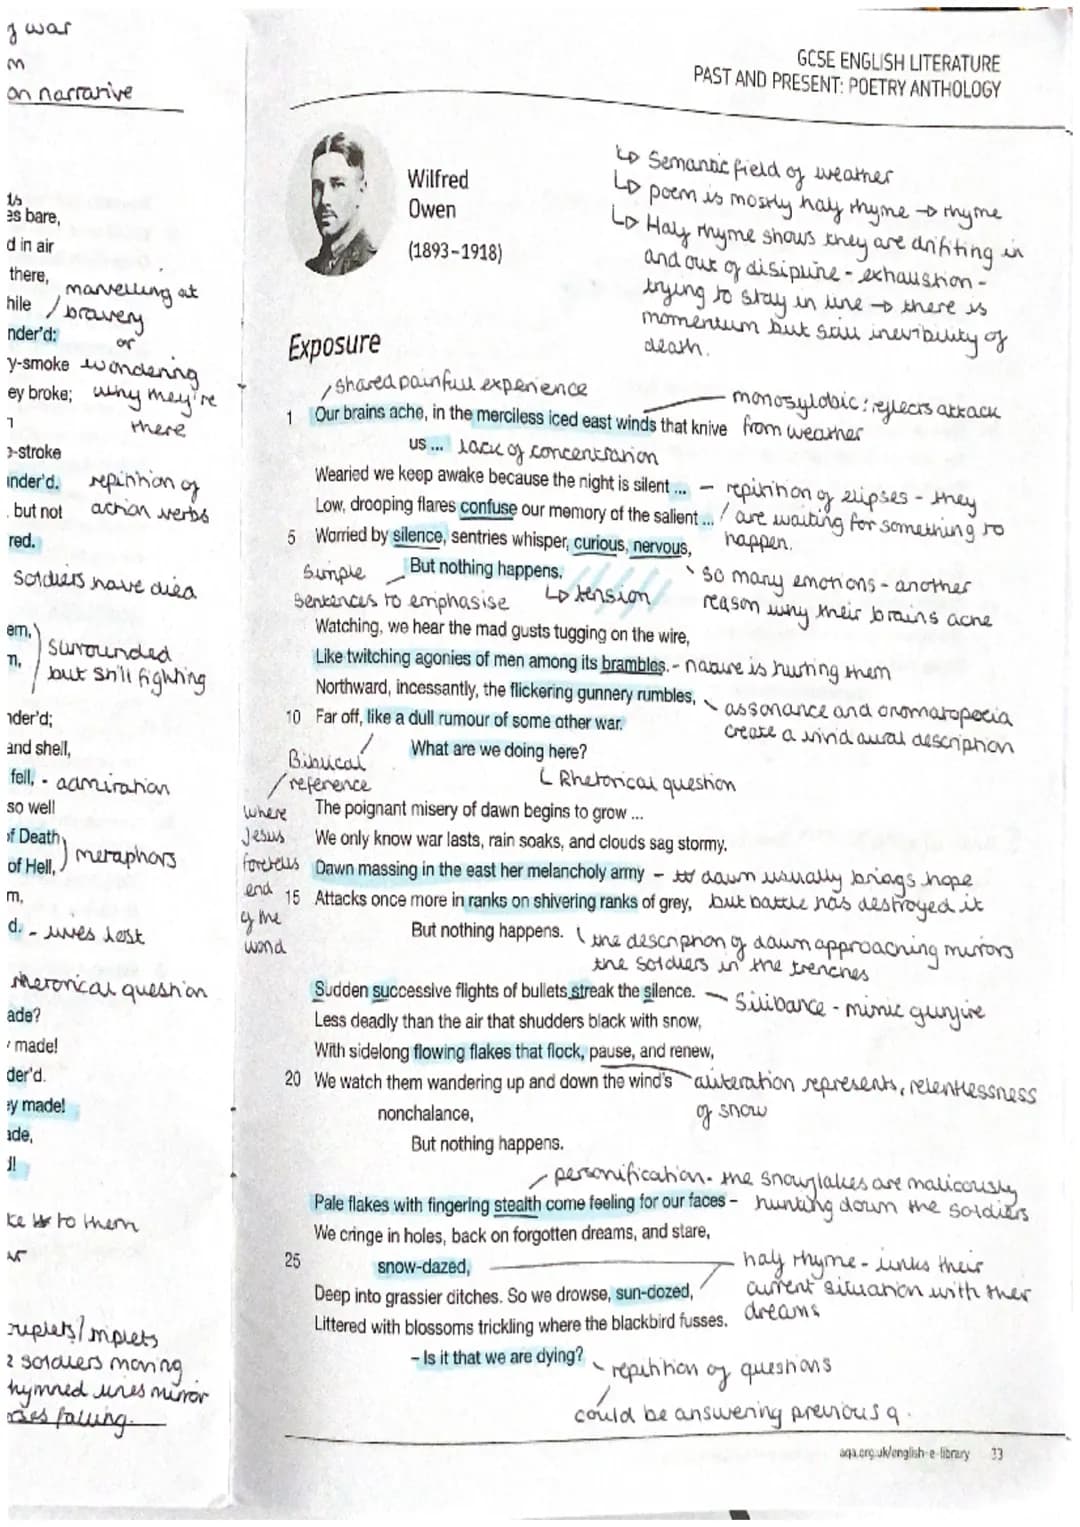 g war
m
on narrative
ts
es bare,
d in air
there,
marvelling at
hile / bravery
nder'd:
or
y-smoke wondering
ey broke; why they're
there
e-stroke
under'd. repitition of
. but not action verbs
red.
Soldiers have died
em,
surrounded
m, but still fighting
nder'd;
and shell,
fell, - admiration
so well
of Death
metaphors
of Hell,
m,
d. - lives lost
rhetorical question
ade?
y made!
der'd.
ey made!
ade,
d!
ke to them
ar
ouplets/triplets
2 soldiers moving
hymned lines mirror
orses falling.
GCSE ENGLISH LITERATURE
PAST AND PRESENT: POETRY ANTHOLOGY
Wilfred
Owen
(1893–1918)
↳ Semantic field of weather
↳ poem is mostly half rhyme → rhyme
↳ Half rhyme shows they are drifiting in
and out of disipline - exhaustion -
trying to stay in line → there is
momentum but still inevibility of
death.
Exposure
shared painful experience
monosylobic: reflects attack
1 Our brains ache, in the merciless iced east winds that knive from weather
us ... lack of concentration
Wearied we keep awake because the night is silent ... - repitition of elipses - they
Low, drooping flares confuse our memory of the salient ... / are waiting for something to
happen.
5 Worried by silence, sentries whisper, curious, nervous,
But nothing happens.
Simple
sentences to emphasise ↳ tension
so many emotions - another
reason why their brains ache
Watching, we hear the mad gusts tugging on the wire,
Like twitching agonies of men among its brambles. - nature is hurting them
Northward, incessantly, the flickering gunnery rumbles,
assonance and onomatopoeia
create a vivid aural description
10 Far off, like a dull rumour of some other war.
What are we doing here?
Biblical
reference
Rhetorical question
where
Jesus
foretells
end
of the
world
The poignant misery of dawn begins to grow ...
We only know war lasts, rain soaks, and clouds sag stormy.
Dawn massing in the east her melancholy army - dawn usually brings hope
15 Attacks once more in ranks on shivering ranks of grey, but battle has destroyed it
But nothing happens.
the description of dawn approaching mirrors
the soldiers in the trenches
Sudden successive flights of bullets streak the silence. - Silibance - mimic gunfire
Less deadly than the air that shudders black with snow,
With sidelong flowing flakes that flock, pause, and renew,
20 We watch them wandering up and down the wind's
nonchalance,
aliteration represents, relentlessness
of snow
But nothing happens.
personification - the snowflakes are malicously
hunting down the soldiers
Pale flakes with fingering stealth come feeling for our faces –
We cringe in holes, back on forgotten dreams, and stare,
25 snow-dazed,
half rhyme - links their
current situation with their
dreams
Deep into grassier ditches. So we drowse, sun-dozed,
Littered with blossoms trickling where the blackbird fusses.
– Is it that we are dying?
repitition of questions
could be answering previous q.
aqa.org.uk/english-e-library 33